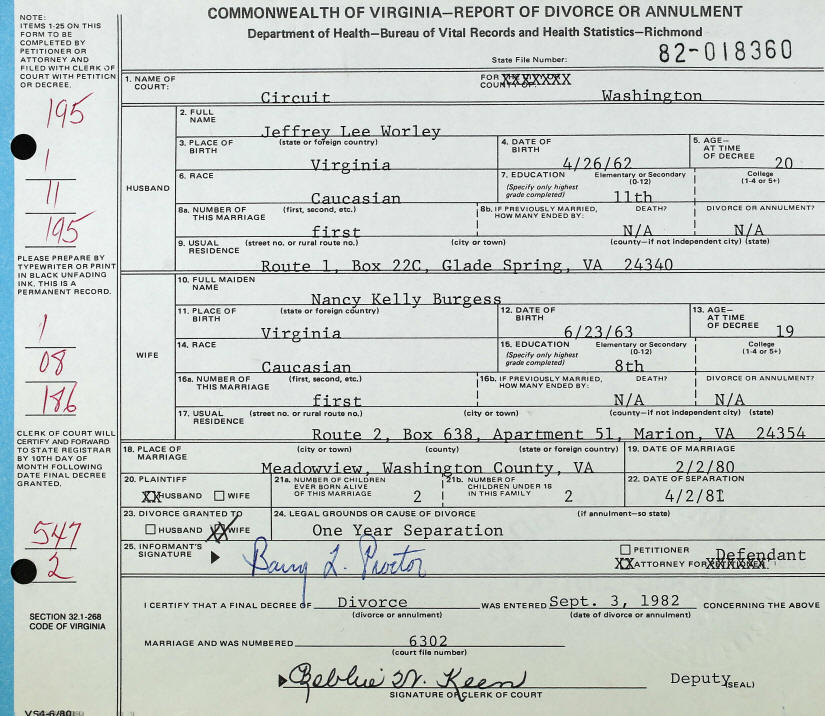 COMMONWEALTH OF VIRGINIA—REPORT OF DIVORCE OR ANNULMENT
Department of Health—Bureau of Vital Records and Health Statistics—Richmond
State File Number: 82-018360
NOTE:
ITEMS 1-25 ON THIS
FORM TO BE
COMPLETED BY
PETITIONER OR
ATTORNEY AND
FILED WITH CLERK OF
COURT WITH PETITION
OR DECREE.
195
1
11
195
PLEASE PREPARE BY
TYPEWRITER OR PRINT
IN BLACK UNFADING
INK. THIS IS A
PERMANENT RECORD.
1
08
186
CLERK OF COURT WILL
CERTIFY AND FORWARD
TO STATE REGISTRAR
BY 10TH DAY OF
MONTH FOLLOWING
DATE FINAL DECREE
GRANTED.
547
2
SECTION 32.1-268
CODE OF VIRGINIA
VS4-6/80
1. NAME OF COURT: Circuit FOR XXXXXXX COUNTY OF: Washington
HUSBAND
2. FULL NAME Jeffrey Lee Worley
3. PLACE OF BIRTH (state or foreign country) Virginia 4. DATE OF BIRTH 4/26/62 5. AGE—AT TIME OF DECREE 20
6. RACE Caucasian 7. EDUCATION (Specify only highest grade completed) Elementary or Secondary (0-12) 11th College (1-4 or 5+)
8a. NUMBER OF THIS MARRIAGE (first, second, etc.) first 8b. IF PREVIOUSLY MARRIED, HOW MANY ENDED BY: DEATH? N/A DIVORCE OR ANNULMENT? N/A
9. USUAL RESIDENCE (street no. or rural route no.) (city or town) (county—if not independent city) (state)
Route 1, Box 22C, Glade Spring, VA 24340
WIFE
10. FULL MAIDEN NAME Nancy Kelly Burgess
11. PLACE OF BIRTH (state or foreign country) Virginia 12. DATE OF BIRTH 6/23/63 13. AGE—AT TIME OF DECREE 19
14. RACE Caucasian 15. EDUCATION (Specify only highest grade completed) Elementary or Secondary (0-12) 8th College (1-4 or 5+)
16a. NUMBER OF THIS MARRIAGE (first, second, etc.) first 16b. IF PREVIOUSLY MARRIED, HOW MANY ENDED BY: DEATH? N/A DIVORCE OR ANNULMENT? N/A
17. USUAL RESIDENCE (street no. or rural route no.) (city or town) (county—if not independent city) (state)
Route 2, Box 638, Apartment 51, Marion, VA 24354
18. PLACE OF MARRIAGE (city or town) (county) (state or foreign country) Meadowview, Washington County, VA 19. DATE OF MARRIAGE 2/2/80
20. PLAINTIFF XX HUSBAND WIFE 21a. NUMBER OF CHILDREN EVER BORN ALIVE OF THIS MARRIAGE 2 21b. NUMBER OF CHILDREN UNDER 18 IN THIS FAMILY 2 22. DATE OF SEPARATION 4/2/81
23. DIVORCE GRANTED TO HUSBAND XX WIFE 24. LEGAL GROUNDS OR CAUSE OF DIVORCE (if annulment—so state) One Year Separation
25. INFORMANT'S SIGNATURE Barry L. Proctor PETITIONER Defendant
XX ATTORNEY FOR XXXXXXX
I CERTIFY THAT A FINAL DECREE OF Divorce WAS ENTERED Sept. 3, 1982 CONCERNING THE ABOVE
(divorce or annulment) (date of divorce or annulment)
MARRIAGE AND WAS NUMBERED 6302
(court file number)
W. Keen Deputy (SEAL)
SIGNATURE OF CLERK OF COURT